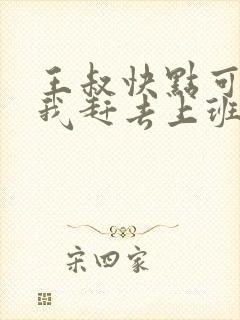 王叔快點可
我赶去上班
宋四家